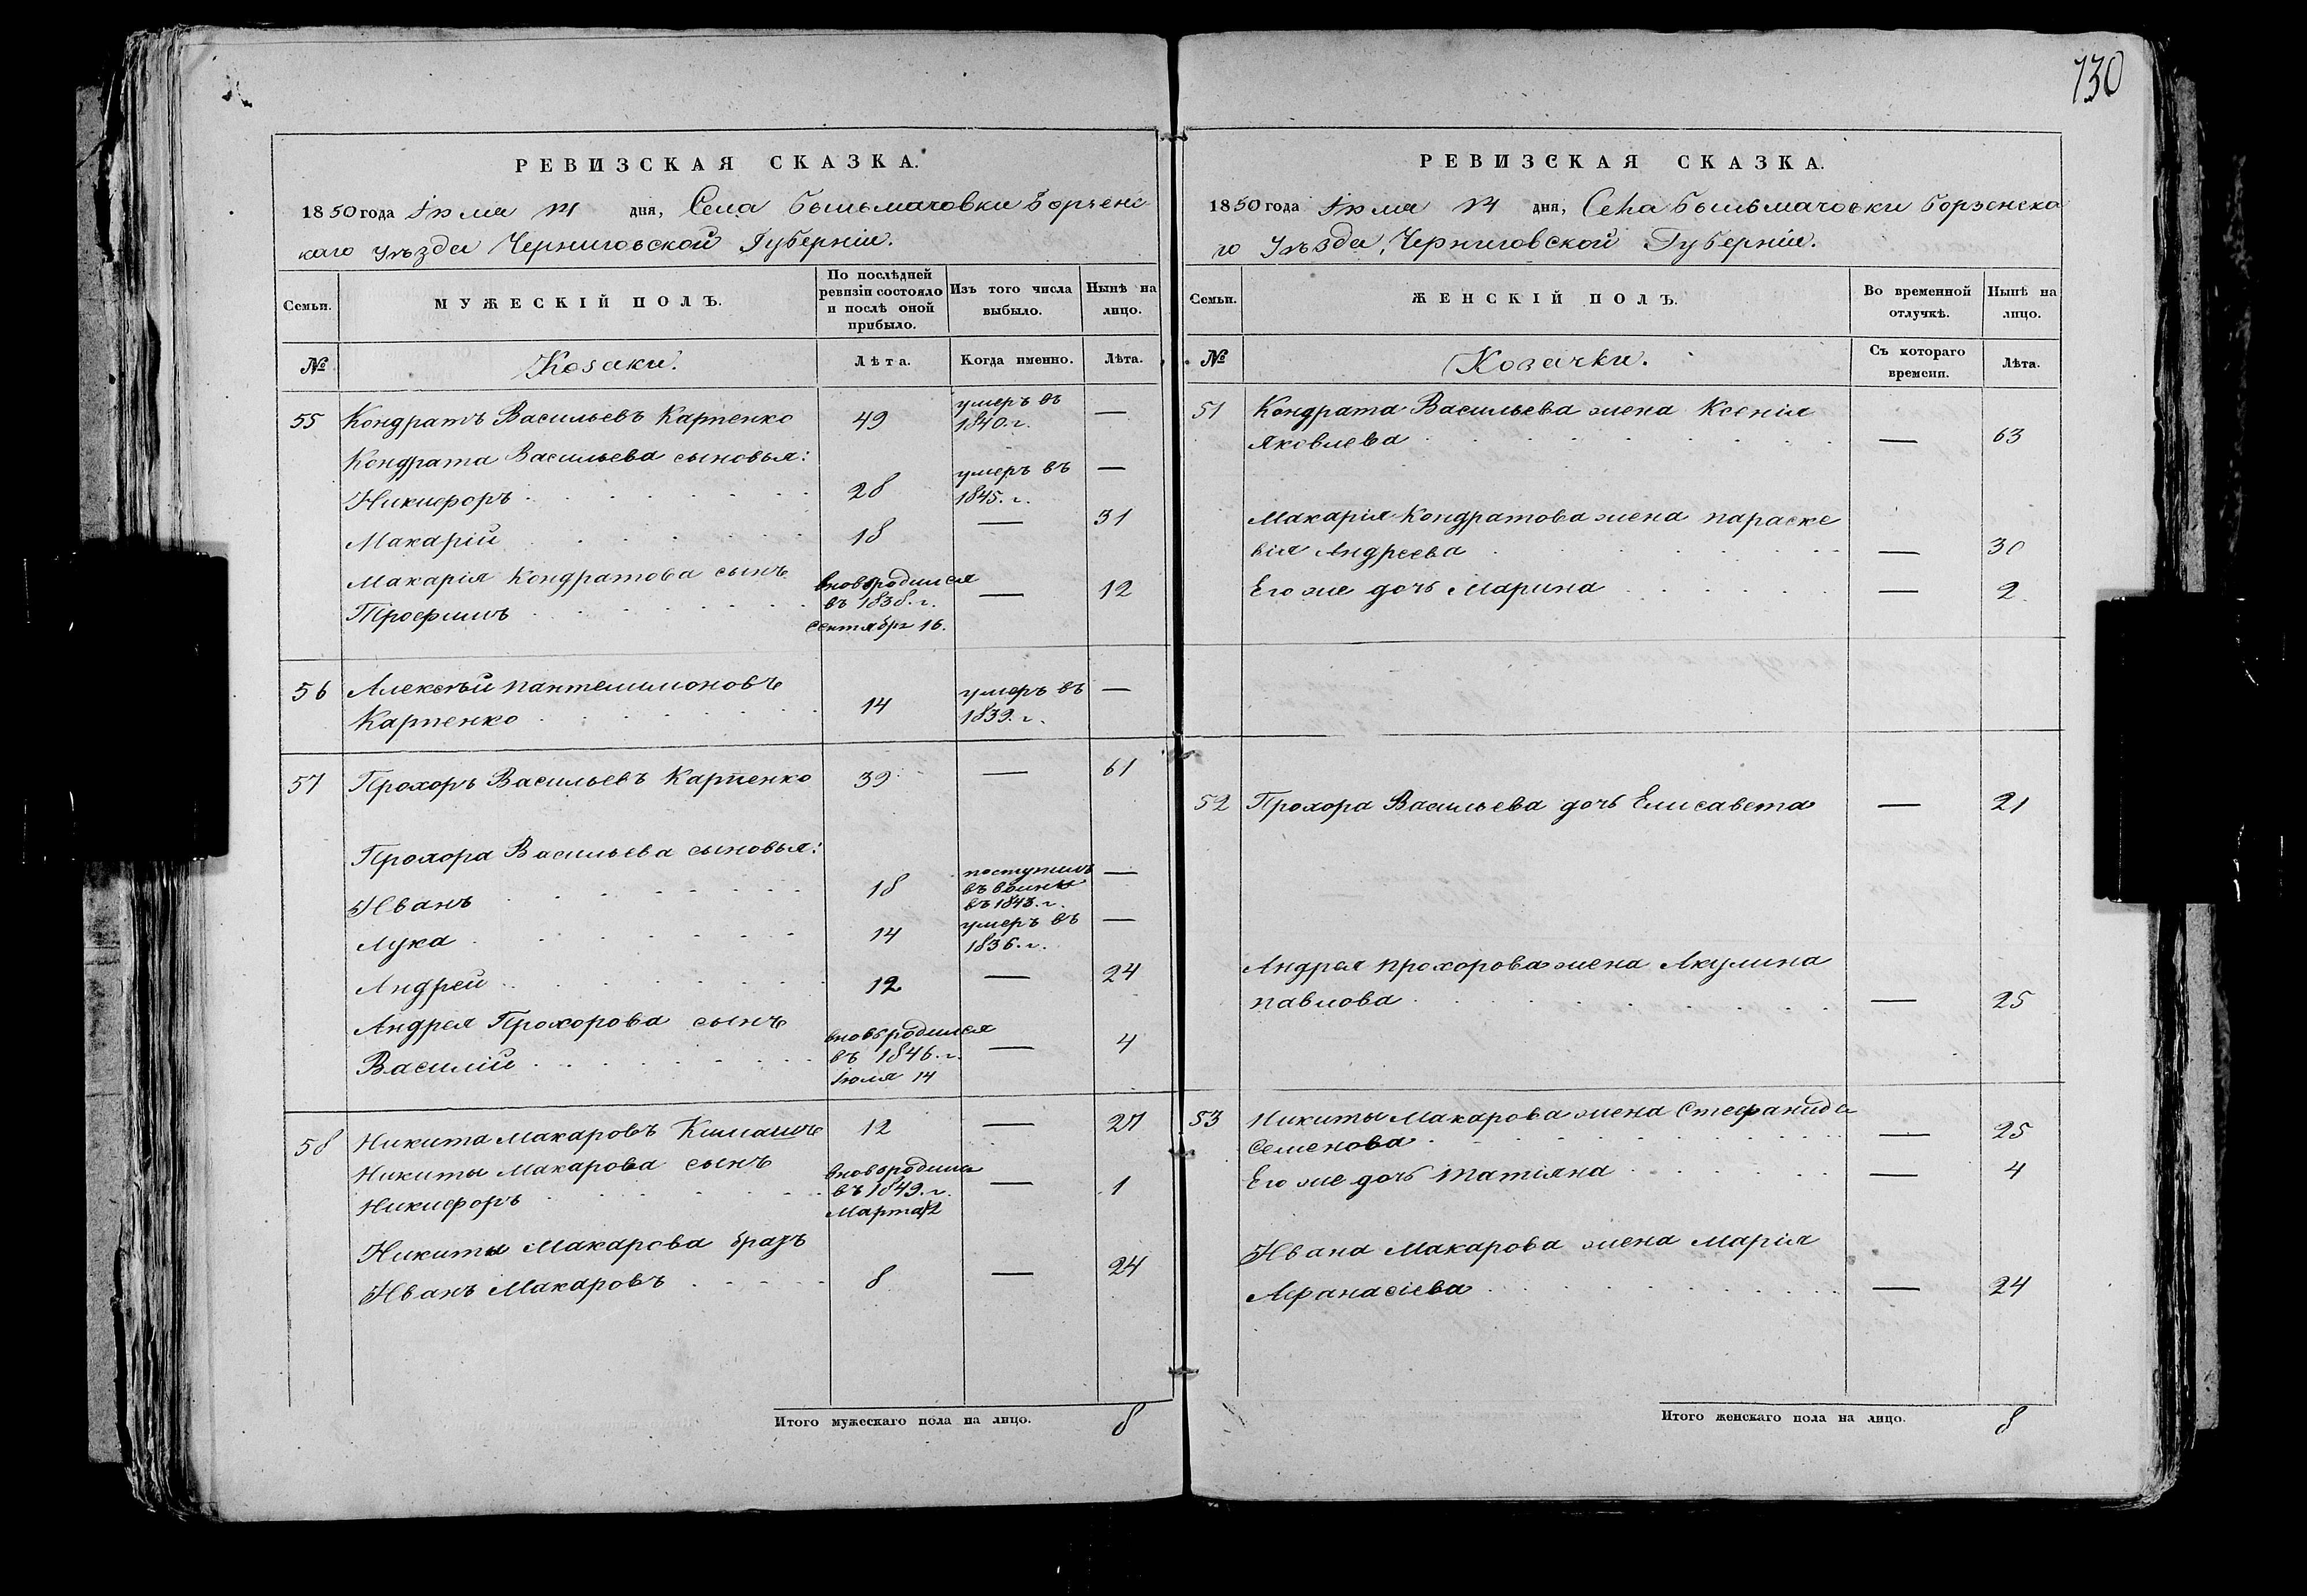 130
РЕВИЗСКАЯ СКАЗКА.
1850 года Іюля 14 дня, Села Больмачовки Борзенс
каго уѣзда Черниговской Губерніи.
Семьи. МУЖЕСКІЙ ПОЛЪ. По послѣдней ревизіи состояло и послѣ оной прибыло. Изъ того числа выбыло. Нынѣ на лицо.
№ Козаки. Лѣта. Когда именно. Лѣта.
55 Кондратъ Васильевъ Карпенко 49 умеръ въ 1840. г. —
Кондрата Васильева сыновья:
Никифоръ 28 умеръ въ 1845. г. —
Макарій 18 — 31
Макарія Кондратова сынъ
Трофимъ вновь родился въ 1838. г. Сентября 16. — 12
56 Алексѣй Пантелимоновъ
Карпенко 14 умеръ въ 1839. г. —
57 Прохоръ Васильевъ Карпенко 39 — 61
Прохора Васильева сыновья:
Иванъ 18 поступилъ въ воины въ 1843. г. —
Лука 14 умеръ въ 1836. г. —
Андрей 12 — 24
Андрея Прохорова сынъ
Василій вновь родился въ 1846. г. Іюля 14 — 4
58 Никита Макаровъ 12 — 27
Никиты Макарова сынъ
Никифоръ вновь родился въ 1849. г. Марта 12 — 1
Никиты Макарова братъ
Иванъ Макаровъ 8 — 24
Итого мужескаго пола на лицо. 8
РЕВИЗСКАЯ СКАЗКА.
1850 года Іюля 14 дня, Села Больмачовки Борзенска
го Уѣзда, Черниговской Губерніи.
Семьи. ЖЕНСКІЙ ПОЛЪ. Во временной отлучкѣ. Нынѣ на лицо.
№ Козачки. Съ котораго времени. Лѣта.
51 Кондрата Васильева жена Ксенія
Яковлева — 63
Макарія Кондратова жена Параске
вія Андреева — 30
Его же дочь Марина — 2
52 Прохора Васильева дочь Елисавета — 21
Андрея Прохорова жена Акулина
Павлова — 25
53 Никиты Макарова жена Стефанида
Семенова — 25
Его же дочь Татіяна — 4
Ивана Макарова жена Марія
Афанасіева — 24
Итого женскаго пола на лицо. 8